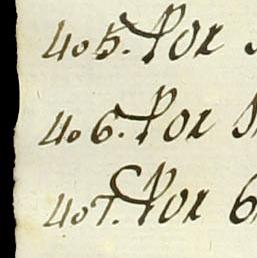 405. Por
406. Por
407. Por 6